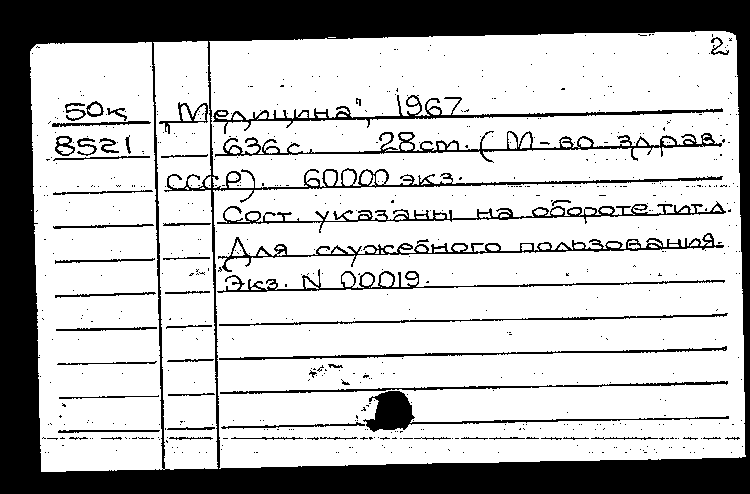 2
50к "Медицина", 1967.
8521 636с. 28cm. (М-во здрав.
СССР). 60000 экз.
Сост. указаны на обороте тит.л.
Для служебного пользования.
Экз. N 00019.